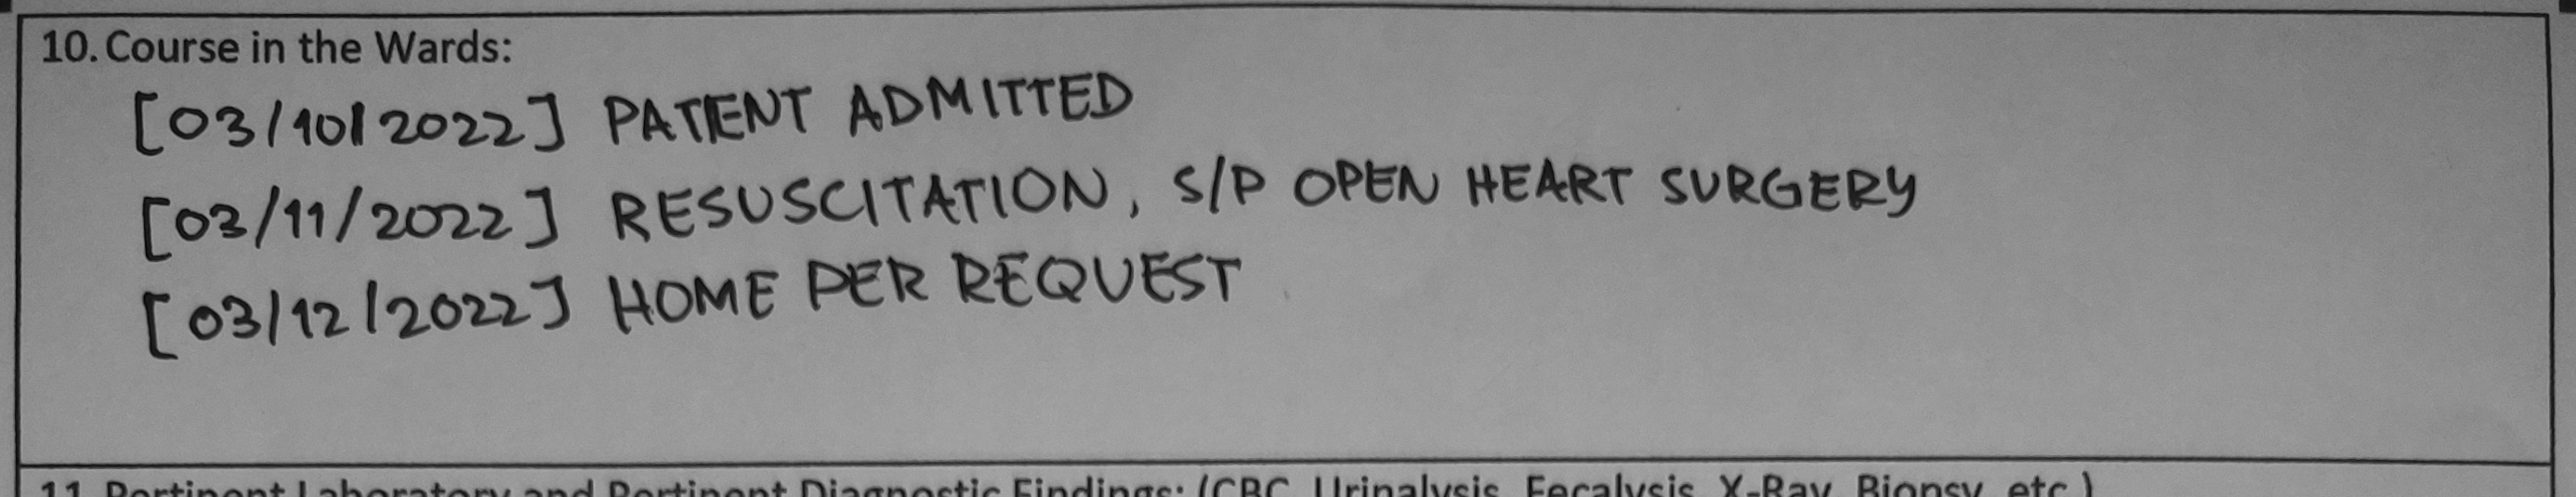 10. Course in the Wards:
[03/10/2022] PATIENT ADMITTED
[03/11/2022] RESUSCITATION, S/P OPEN HEART SURGERY
[03/12/2022] HOME PER REQUEST
11. Pertinent Laboratory and Pertinent Diagnostic Findings: (CBC, Urinalysis, Fecalysis, X-Ray, Biopsy, etc.)